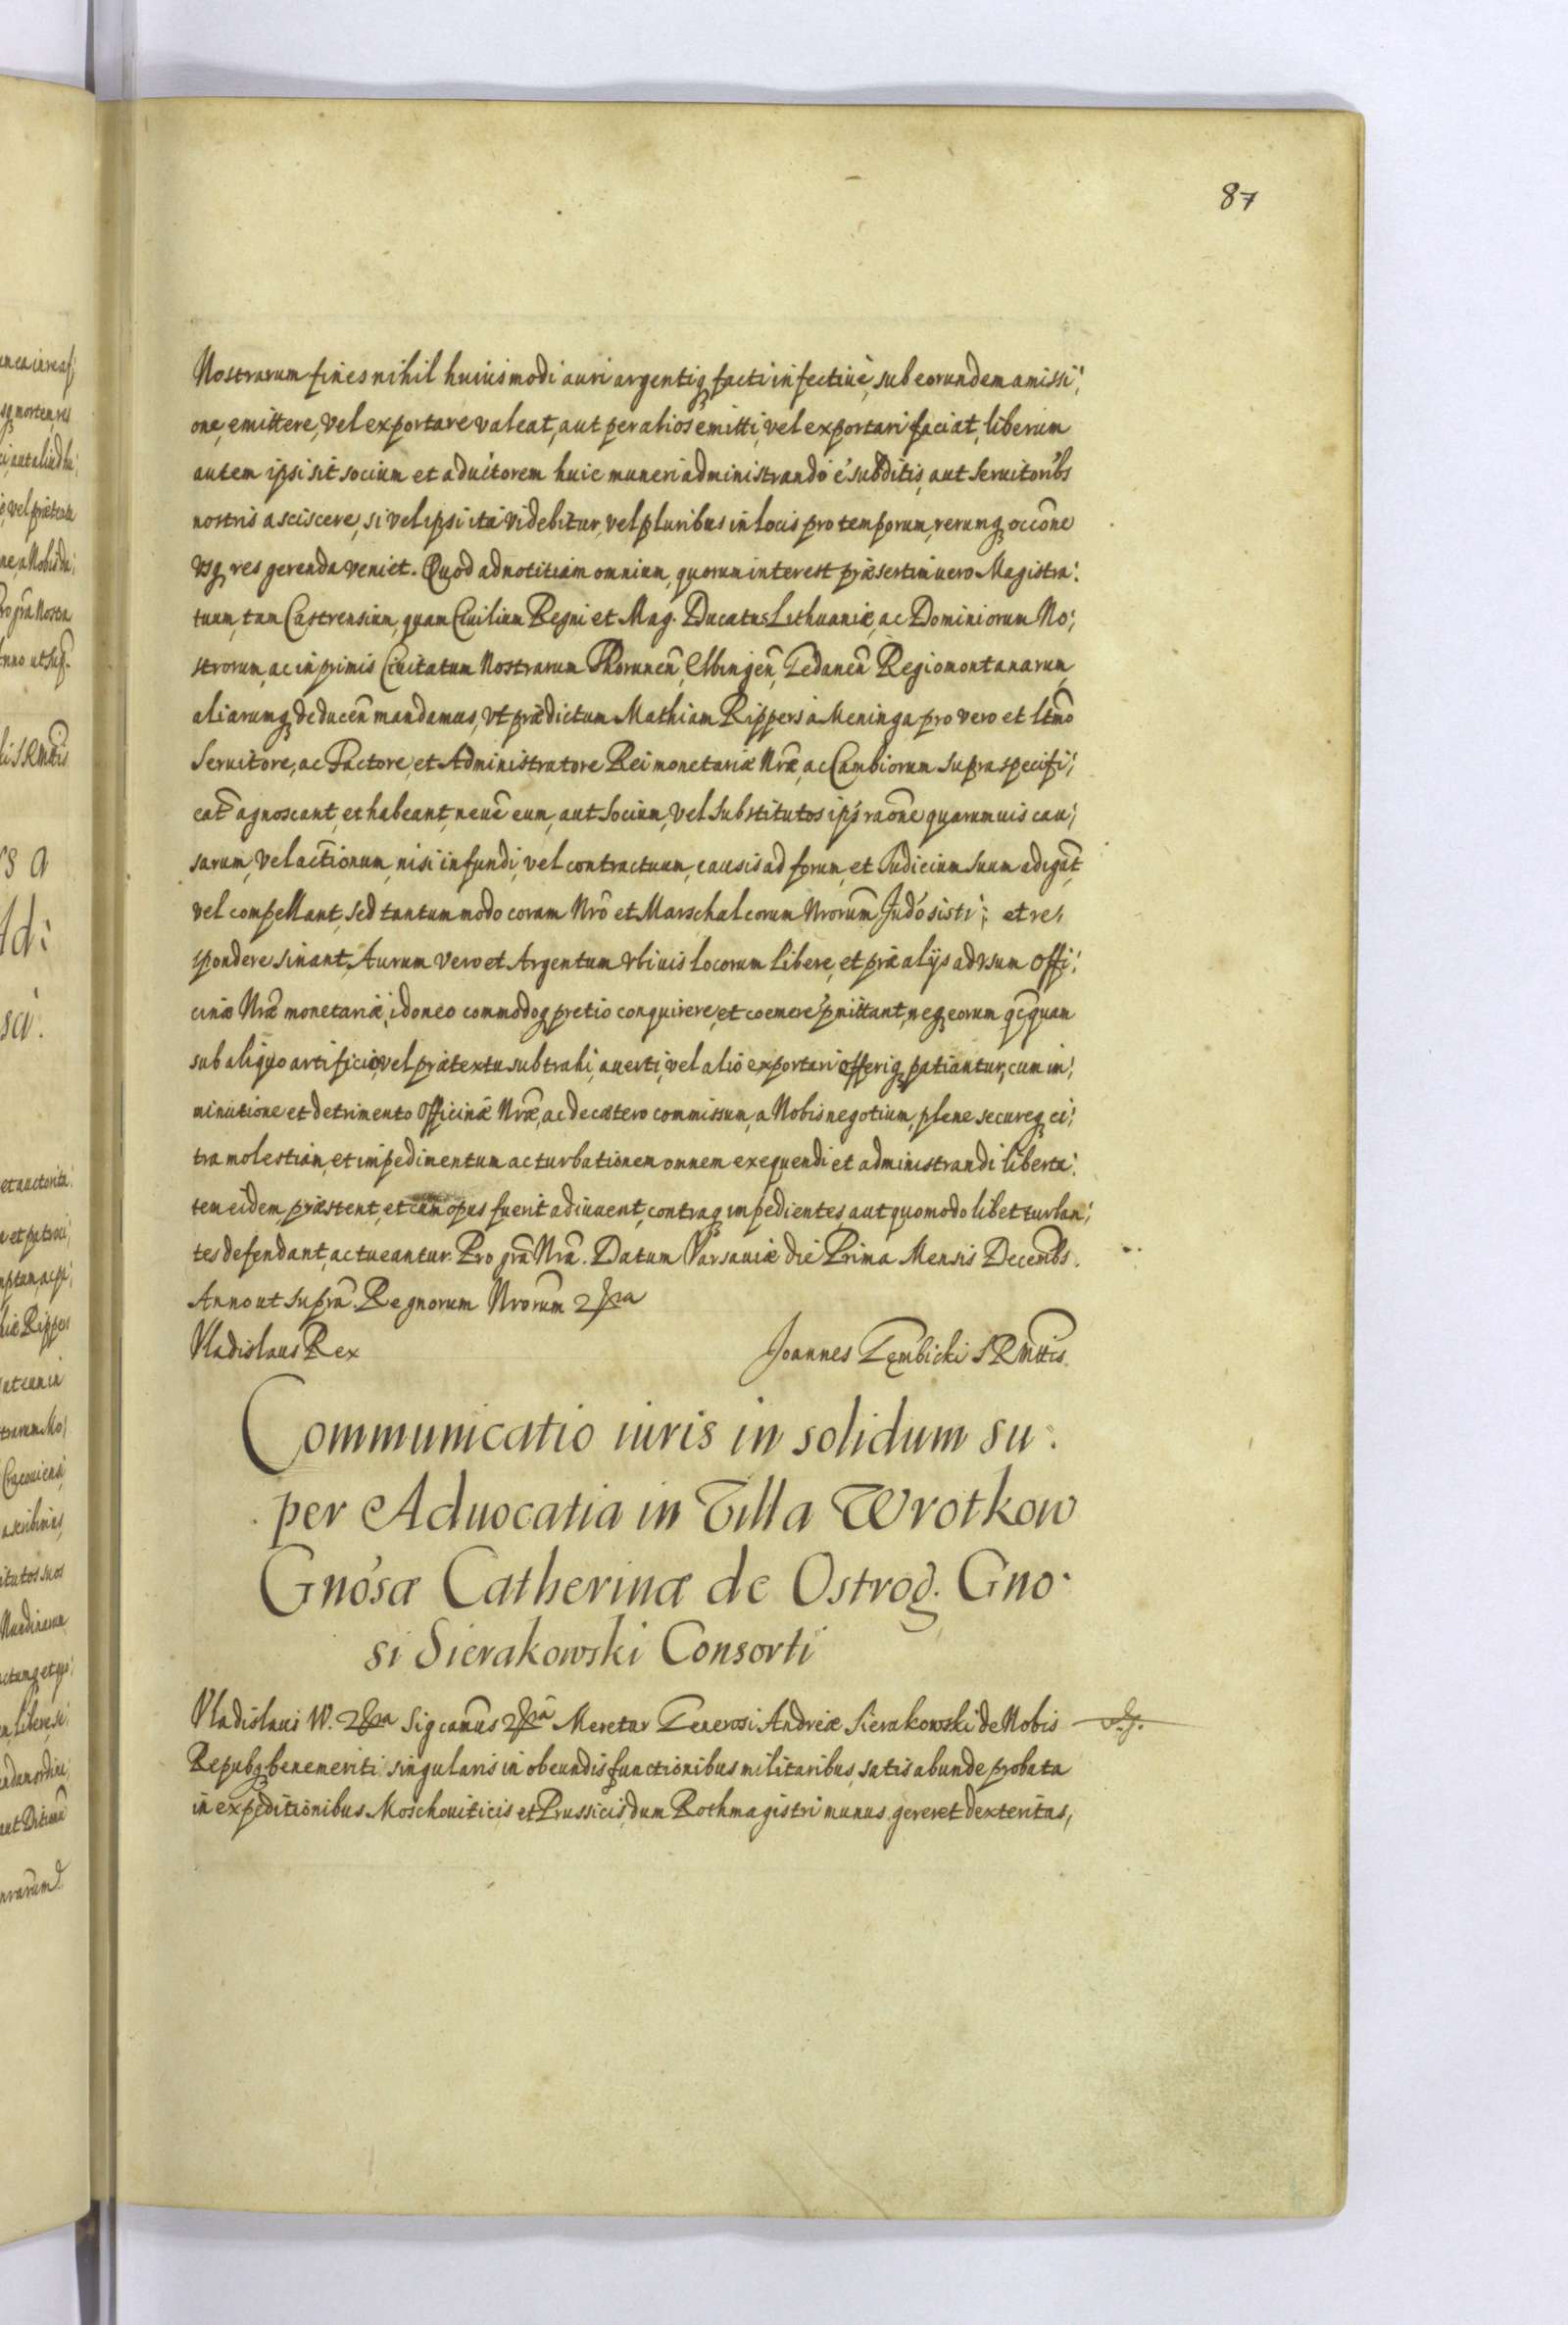 87
Nostrarum fines nihil huiusmodi auri argentiq facti infectiue, sub eorundem amissi:
one, emittere, vel exportare valeat, aut per alios emitti, vel exportari faciat, liberum
autem ipsi sit socium et aduitorem huic muneri administrando e subditis, aut Seruitoribs
nostris asciscere, si vel ipsi ita videbitur, vel pluribus in locis pro temporum, rerumq occone
vsq res gerenda veniet. Quod ad notitiam omnium, quorum interest præsertim vero Magistra:
tuum, tam Castrensium, quam Ciuilium Regni et Mag. Ducatus Lithuaniæ, ac Dominiorum No:
strorum, ac in primis Ciuitatum Nostrarum Thorunen, Elbingen, Gedanen Regiomontanarum,
aliarumq deducen mandamus, vt prædictum Mathiam Rippers a Meninga pro vero et ltmo
Seruitore, ac Factore, et Administratore Rei monetariæ Nræ, ac Cambiorum supra specifi:
cat agnoscant, et habeant, neue eum, aut Socium, vel Substitutos ips raone quarumuis cau:
sarum, vel actionum, nisi in fundi, vel contractuum, causis ad forum, et Judicium suum adigat,
vel compellant, sed tantummodo coram Nro et Marschalcorum Nrorum Judo sisti; et re:
spondere sinant, Aurum vero et Argentum vbiuis locorum libere, et præ alijs ad vsum Offi:
cinæ Nræ monetariæ, idoneo commodoq pretio conquirere, et coemere pmittant, neq eorum qcquam
sub aliquo artificio, vel prætextu subtrahi, auerti, vel alio exportari offeriq patiantur, cum im:
minutione et detrimento Officinæ Nræ, ac de cætero commissum, a Nobis negotium, plene secureq ci:
tra molestiam, et impedimentum ac turbationem omnem exequendi et administrandi liberta:
tem eidem, præstent, et cum opus fuerit adiuuent, contraq impedientes, aut quomodolibet turban:
tes defendant, ac tueantur. Pro gra Nra. Datum Varsauiæ die Prima Mensis Decembs.
Anno ut supra. Regnorum Nrorum
Vladislaus Rex Joannes Gembicki SRMttis.
Communicatio iuris in solidum su:
per Aduocatia in Villa Wrotkow
Gnosæ Catherinæ de Ostrog. Gno
si Sierakowski Consorti
Vladislaus IV. Sigcamus Meretur Generosi Andreæ Sierakowski de Nobis
Repubq benemeriti singularis in obeundis functionibus militaribus, satis abunde probata
in expeditionibus Moschouiticis et Prussicis, dum Rothmagistri munus gereret dexteritas,